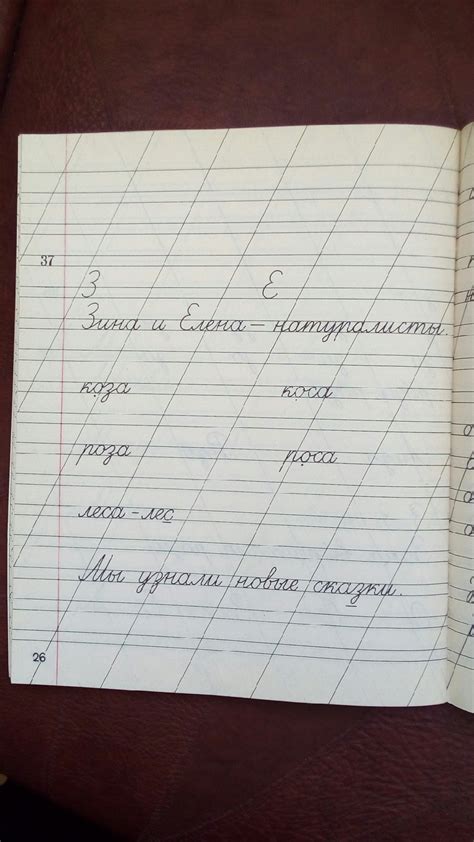 37
З Е
Зина и Елена – натуралисты.
коза коса
роза роса
леса – лес
Мы узнали новые сказки.
26